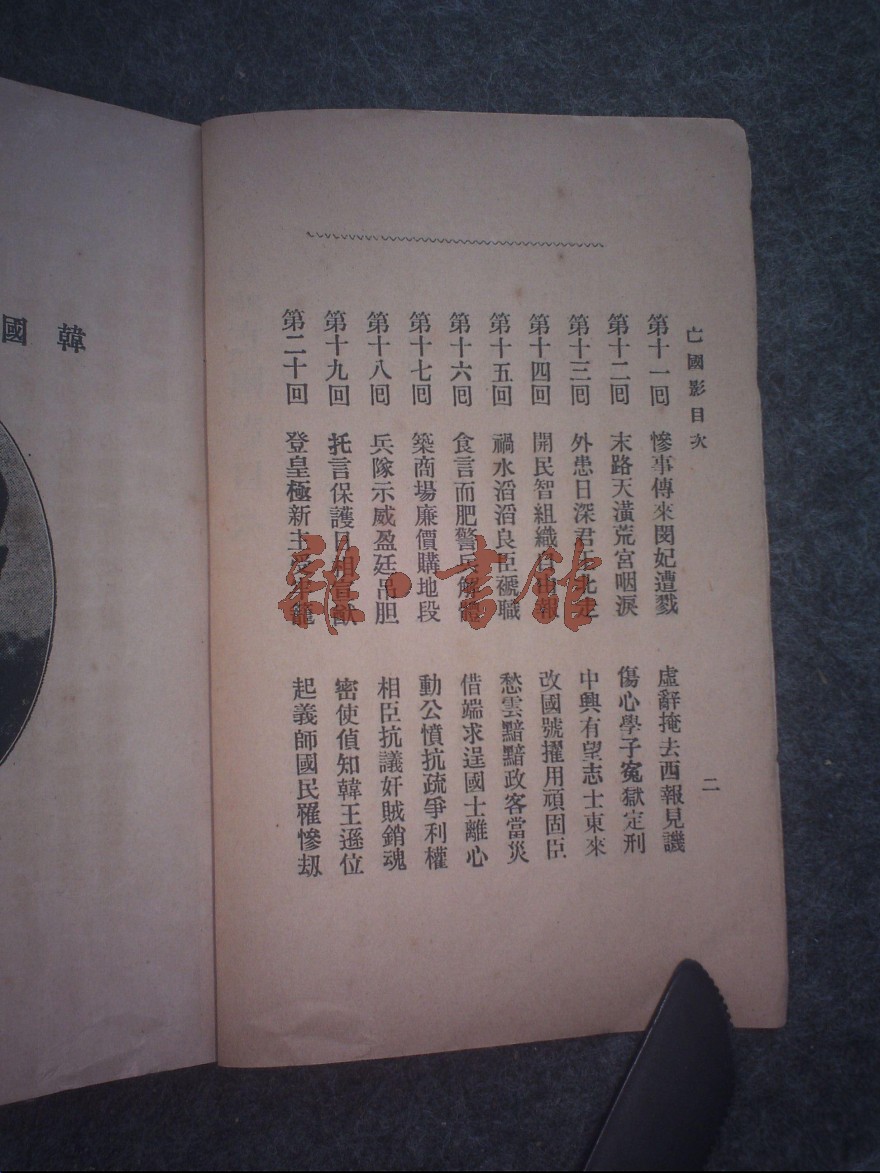 亡國影目次
二
第十一囘 慘事傳來閔妃遭戮 虛辭掩去西報見譏
第十二囘 末路天潢荒宮咽淚 傷心學子寃獄定刑
第十三囘 外患日深君 北 中興有望志士東來
第十四囘 開民智組織自由報 改國號擢用頑固臣
第十五囘 禍水滔滔良臣褫職 愁雲黯黯政客當災
第十六囘 食言而肥警兵解體 借端求逞國士離心
第十七囘 築商場廉價購地段 動公憤抗疏爭利權
第十八囘 兵隊示威盈廷吊胆 相臣抗議奸賊銷魂
第十九囘 托言保護日相 密使偵知韓王遜位
第二十囘 登皇極新主受牢籠 起義師國民罹慘刼
韓國
雜·書館